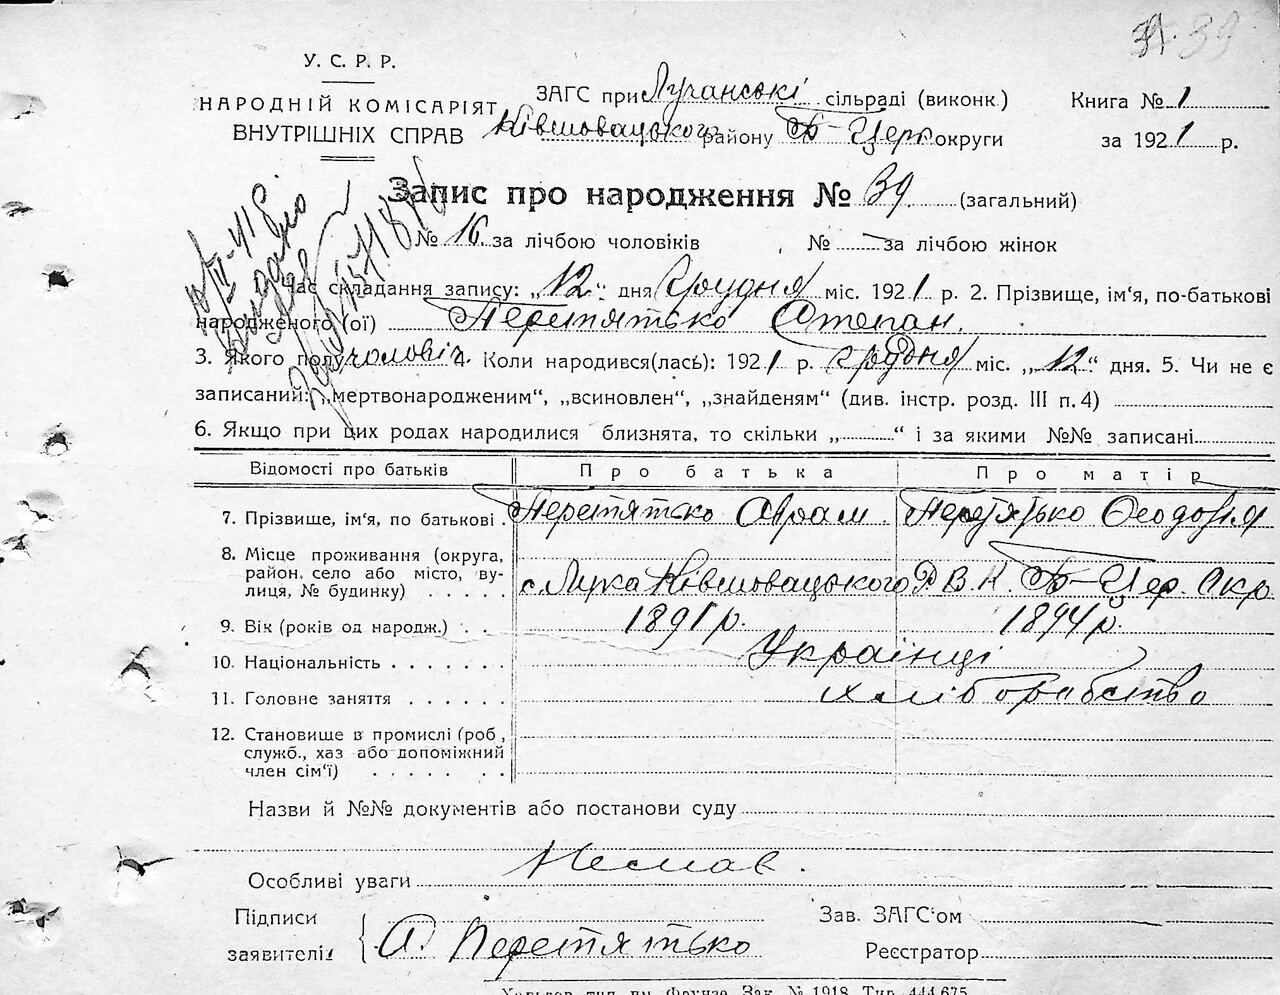 39
У. С. Р. Р.
НАРОДНІЙ КОМІСАРІЯТ
ВНУТРІШНІХ СПРАВ
ЗАГС при Лучанські сільраді (виконк.)
Ківшовацького району Б-Церк округи
Книга № 1
за 1921 р.
Запис про народження № 39 (загальний)
№ 16 за лічбою чоловіків № за лічбою жінок
Час складання запису: „12" дня Грудня міс. 1921 р. 2. Прізвище, ім'я, по-батькові
народженого (ої) Перетятько Степан.
3. Якого полу чоловіч. 4. Коли народився(лась): 1921 р. грудня міс. „12" дня. 5. Чи не є
записаний: „мертвонародженим", „всиновлен", „знайденям" (див. інстр. розд. III п. 4)
6. Якщо при цих родах народилися близнята, то скільки „ " і за якими №№ записані
Відомості про батьків Про батька Про матір
7. Прізвище, ім'я, по батькові . Перетятько Аврам. Перетятько Феодосія
8. Місце проживання (округа,
район, село або місто, ву-
лиця, № будинку) . . . . . с. Лука Ківшовацького Р.В.К. Б-Цер. Окр
9. Вік (років од народж.) . . 1891 р. 1894 р.
10. Національність . . . . . . . Українці
11. Головне заняття . . . . . . хліборобство
12. Становище в промислі (роб.,
служб., хаз або допоміжний
член сім'ї) . . . . . . .
Назви й №№ документів або постанови суду
Немає.
Особливі уваги
Підписи
заявителів А Перетятько
Зав. ЗАГС'ом
Реєстратор
Харьков тип. ім. Фрунзе Зак. № 1918 Тир. 444.675